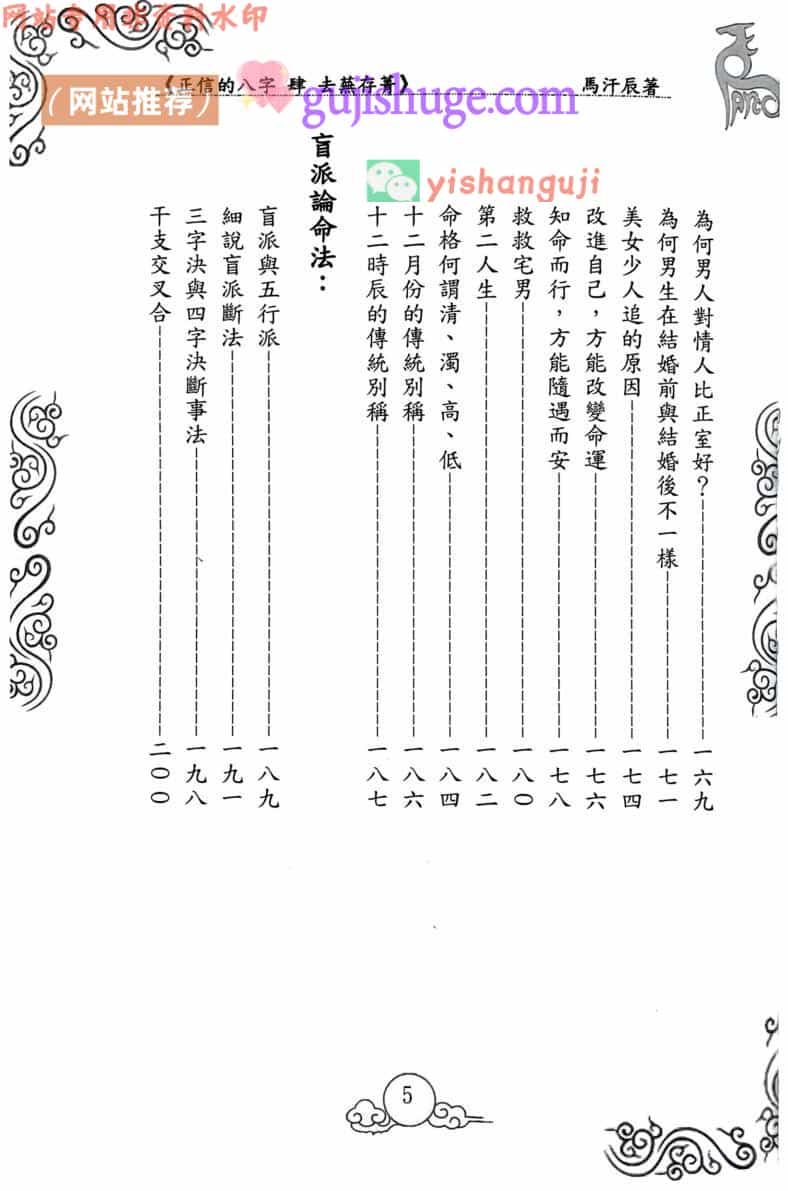 《正信的八字 肆 去蕪存菁》
馬汗辰著
（网站推荐）
gujishuge.com
yishanguji
為何男人對情人比正室好？一六九
為何男生在結婚前與結婚後不一樣 一七一
美女少人追的原因 一七四
改進自己，方能改變命運 一七六
知命而行，方能隨遇而安 一七八
救救宅男 一八０
第二人生 一八二
命格何謂清、濁、高、低 一八四
十二月份的傳統別稱 一八六
十二時辰的傳統別稱 一八七
盲派論命法：
盲派與五行派 一八九
細說盲派斷法 一九一
三字決與四字決斷事法 一九八
干支交叉合 二００
5